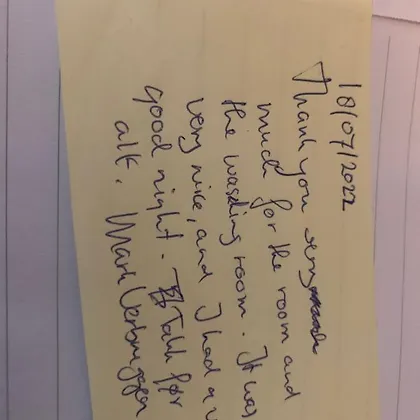 18/07/2022
Thank you very
much for the room and
the wasding room. It was
very nice, and I had a
good night. Takk for
alt. Mark Verbruggen